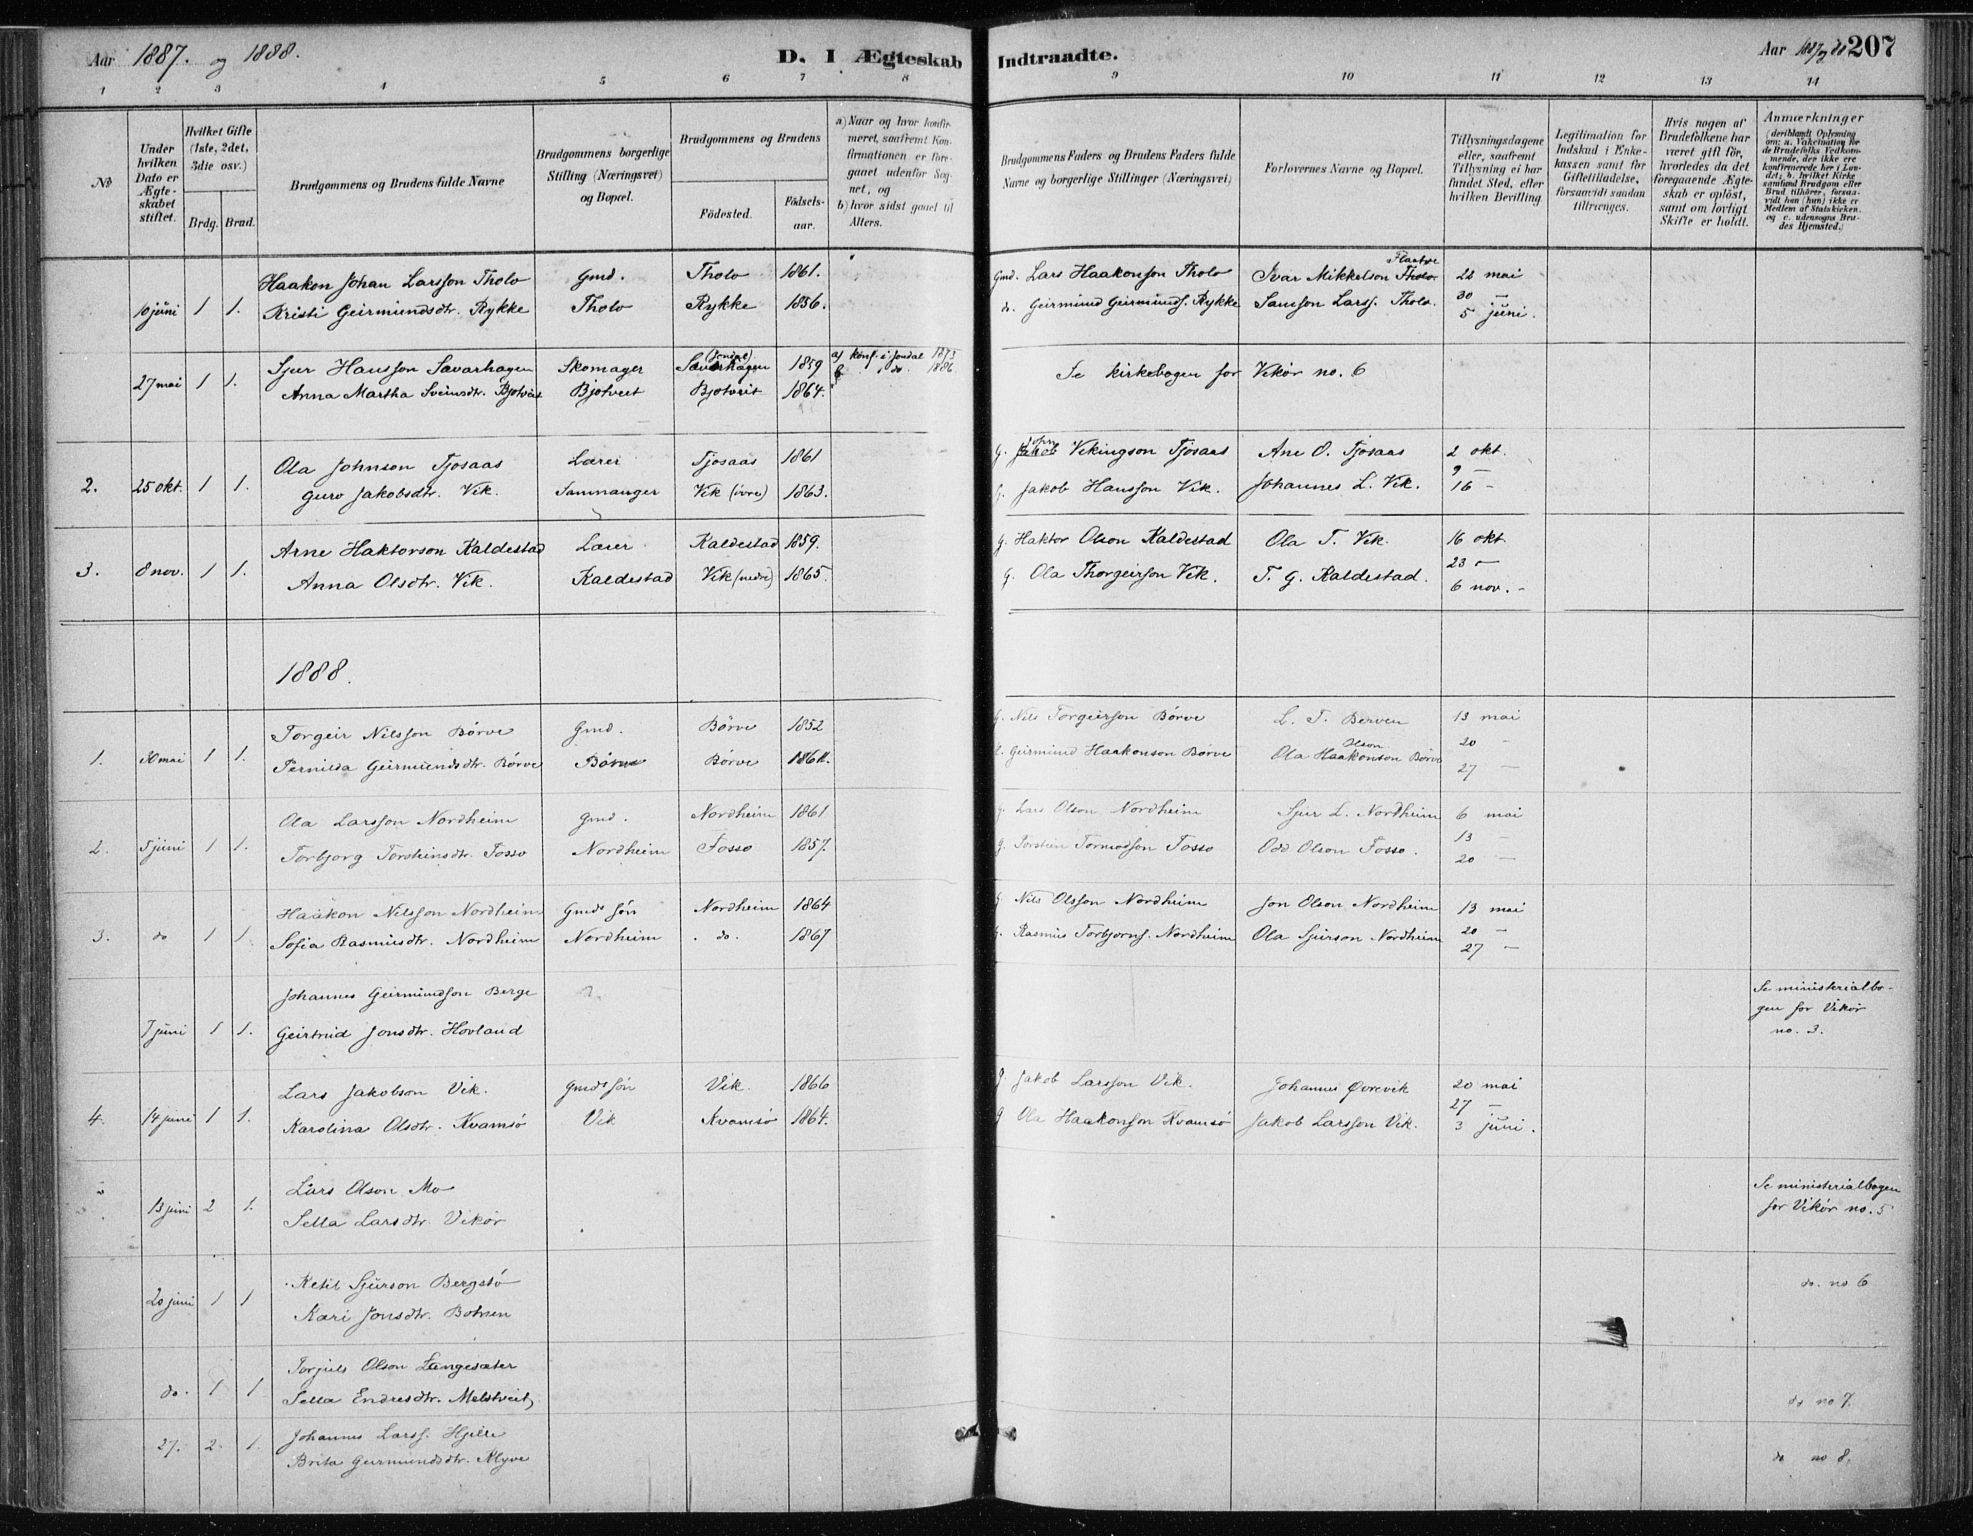 Aar 1887. og 1888.
D. I Ægteskab Indtraadte.
Aar 1887 og 88 207
1 2 3 4 5 6 7 8 9 10 11 12 13 14
No
Under hvilken Dato er Ægteskabet stiftet.
Hvilket Gifte (1ste, 2det, 3die osv.)
Brdg. Brud.
Brudgommens og Brudens fulde Navne
Brudgommens borgerlige Stilling (Næringsvei) og Bopæl.
Brudgommens og Brudens
Födested.
Födselsaar.
a) Naar og hvor konfirmeret, saafremt Konfirmationen er foregaaet udenfor Sognet, og
b) hvor sidst gaaet til Alters.
Brudgommens Faders og Brudens Faders fulde Navne og borgerlige Stillinger (Næringsvei)
Forlovernes Navne og Bopæl.
Tillysningsdagene eller, saafremt Tillysning ei har fundet Sted, efter hvilken Bevilling
Legitimation for Indskud i Enkekassen samt for Giftetilladelse, forsaavidt saadan tiltrænges.
Hvis nogen af Brudefolkene har været gift för, hvorledes da det foregaaende Ægteskab er oplöst, samt om lovligt Skifte er holdt.
Anmærkninger (deriblandt Oplysning om: a. Vakcination for de Brudefolks Vedkommende, der ikke ere konfirmerede her i Landet; b. hvilket Kirkesamfund Brudgom eller Brud tilhörer, forsaavidt han (hun) ikke er Medlem af Statskirken. og c. udensogns Brudes Hjemsted.)
10 juni 1 1. Haakon Johan Larsson Tholo Gmd. Tholo 1861. Gmd. Lars Haakonson Tholo Ivar Mikkelson Tholo 22 mai
Kristi Geirmundsdtr. Rykke Tholo Rykke 1856. do. Geirmund Geirmunds. Rykke Samson Larss. Tholo. 30 –
5 juni.
27 mai 1 1. Sjur Hansson Sævarhagen Skomager Sævarhagen (Jondal) 1859 a) konf. i Jondal 1873 Se kirkebogen for Vikør no. 6
Anna Martha Sveinsdtr. Bjotveit Bjotveit Bjotveit 1864. do. 1886
2. 25 okt. 1 1. Ola Johnson Tjosaas Lærer Tjosaas 1861 G. John Vikingson Tjosaas Ane O. Tjosaas 2 okt.
9 –
Guro Jakobsdtr. Vik. Samnanger Vik (övre) 1863. G. Jakob Hansson Vik. Johannes L. Vik. 16 –
3. 8 nov. 1 1. Arne Haktorson Kaldestad Lærer Kaldestad 1859. G. Haktor Olson Kaldestad Ola T. Vik. 16 okt
23 –
Anna Olsdtr. Vik. Kaldestad Vik (nedre) 1865. G. Ola Thorgeirson Vik. T. G. Kaldestad. 6 nov. –
1888.
1. 30 mai 1 1. Torgeir Nilsson Börve Gmd. Börve 1852 G. Nils Torgeirson Börve L. T. Berven 13 mai
20 –
Pernilla Geirmundsdtr. Börve Börve Börve G. Geirmund Haakonson Börve Ola Haakonson Olson Börve 27 –
2. 5 juni 1 1. Ola Larsson Nordheim Gmd. Nordheim 1861 G. Lars Olson Nordheim Sjur L. Nordheim 6 mai
13 –
Torbjorg Torsteinsdtr. Fosso Nordheim Fosso 1857. G. Torstein Tormodson Fosso Odd Olson Fosso. 20 –
3. do 1 1. Haakon Nilsson Nordheim Gmds sön Nordheim 1864 G. Nils Olsson Nordheim Jon Olson Nordheim 13 mai
20 –
Sofia Rasmusdtr. Nordheim Nordheim do. 1867 G. Rasmus Torbjorns. Nordheim Ola Sjurson Nordheim 27 –
7 juni 1 1. Johannes Geirmundson Berge Se ministerialbogen for Vikør no. 3.
Geirtrud Jonsdtr. Hovland
4. 14 juni 1 1. Lars Jakobson Vik. Gmds sön Vik. 1866 G. Jakob Larsson Vik. Johannes Øvrevik 20 mai
27 –
Karolina Olsdtr. Kvamsö Vik Kvamsö 1864. G Ola Haakonson Kvamsö Jakob Larsson Vik. 3 juni.
13 juni 2 1. Lars Olson Mo Se ministerialbogen for Vikør no. 5
Sella Larsdtr. Vikør
20 juni 1 1 Ketil Sjurson Bergstö do. no 6
Kari Jonsdtr. Botnen
do. 1 1 Torjuls Olson Langesæter
Sella Endresdtr. Melstveit do no 7.
27. 2. 1. Johannes Larss. Hjelle
Brita Geirmundsdtr. Klyve do no 8.